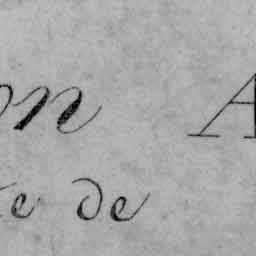 on A
te de